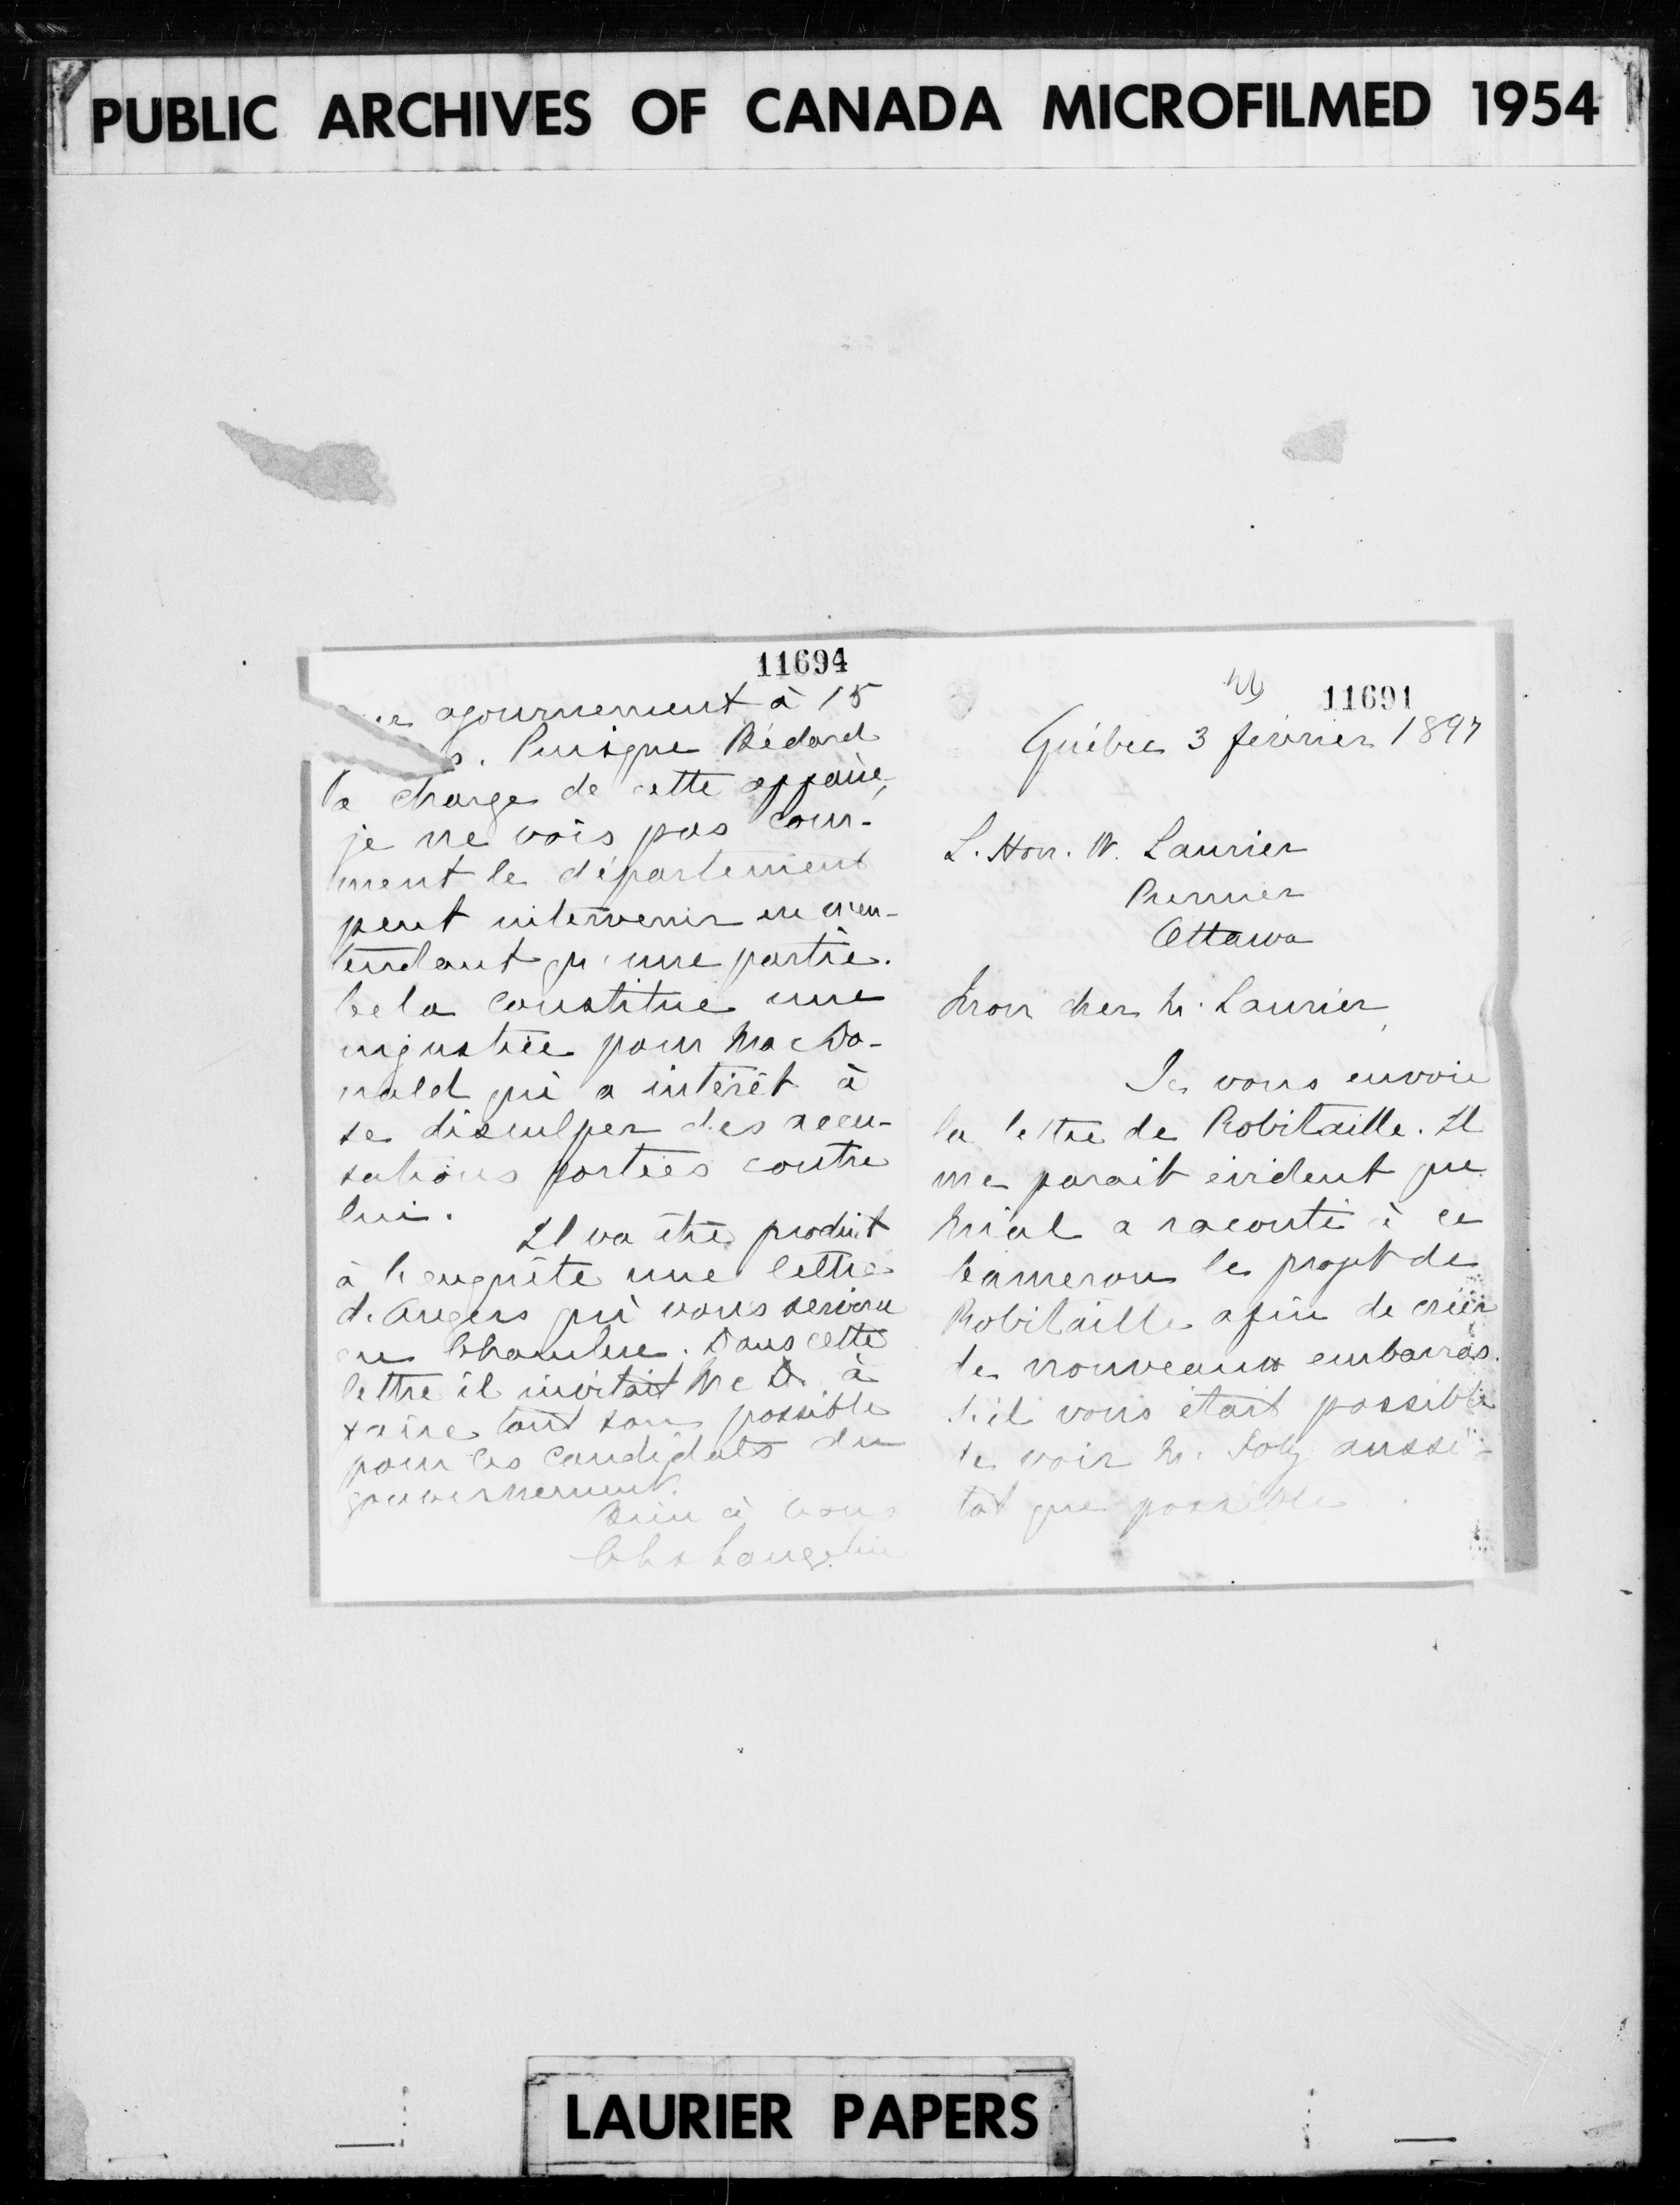 PUBLIC ARCHIVES OF CANADA MICROFILMED 1954
11694
ajournement à 15
Puisque Bédard
a charge de cette affaire,
je ne vois pas com-
ment le département
peut intervenir en n'en-
tendant qu'une partie.
Cela constitue une
injustice pour MacDo-
nald qui a intérêt à
se disculper des accu-
sations portées contre
lui.
Il va être produit
à l'enquête une lettre
d'Angers qui vous servira
en Chambre. Dans cette
lettre il invitait McD. à
faire tout son possible
pour les candidats du
gouvernement.
Bien à vous
Chs Langelier
11691
Québec 3 février 1897
L'Hon. W. Laurier
Premier
Ottawa
Mon cher M. Laurier,
Je vous envoie
la lettre de Robitaille. Il
me parait évident que
a raconté à ce
Cameron le projet de
Robitaille afin de créer
de nouveaux embarras.
S'il vous était possible
de voir M. Joly aussi-
tôt que possible
LAURIER PAPERS